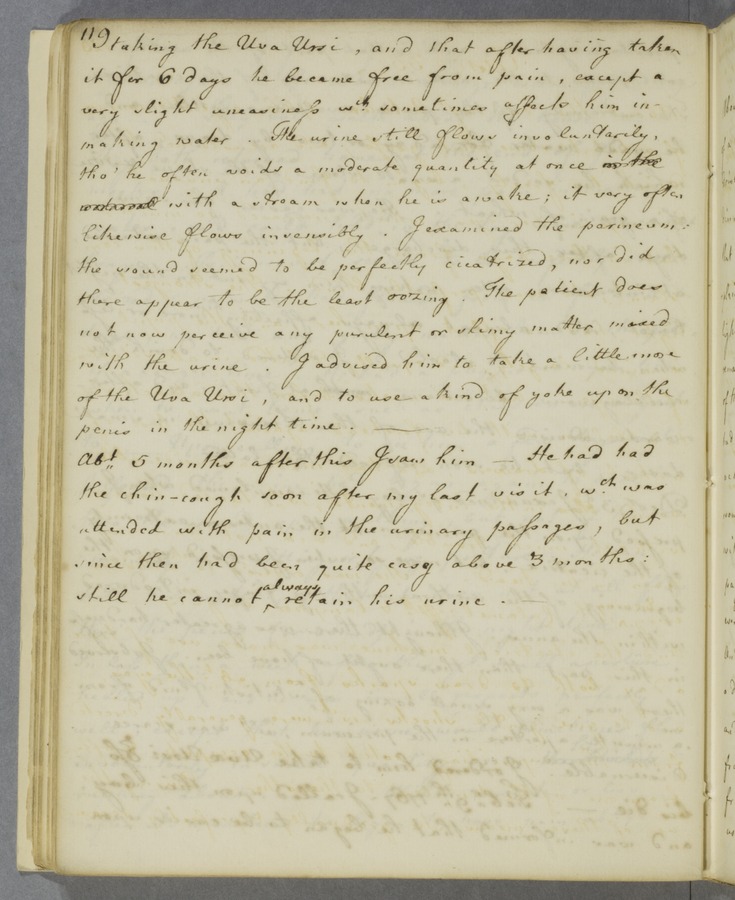 119
taking the Uva Ursi, and that after having taken
it for 6 days he became free from pain, except a
very slight uneasiness wch. sometimes affects him in
making water. The urine still flows involuntarily,
tho' he often voids a moderate quantity at once in the
with a stream when he is awake; it very often
likewise flows insensibly. I examined the perineum:
the wound seemed to be perfectly cicatrized, nor did
there appear to be the least oozing. The patient does
not now perceive any purulent or slimy matter mixed
with the urine. I advised him to take a little more
of the Uva Ursi, and to use a kind of yoke upon the
penis in the night time. —
Abt. 5 months after this I saw him — He had had
the chin-cough soon after my last visit, wch. was
attended with pain in the urinary passages, but
since then had been quite easy above 3 months:
still he cannot always retain his urine. —